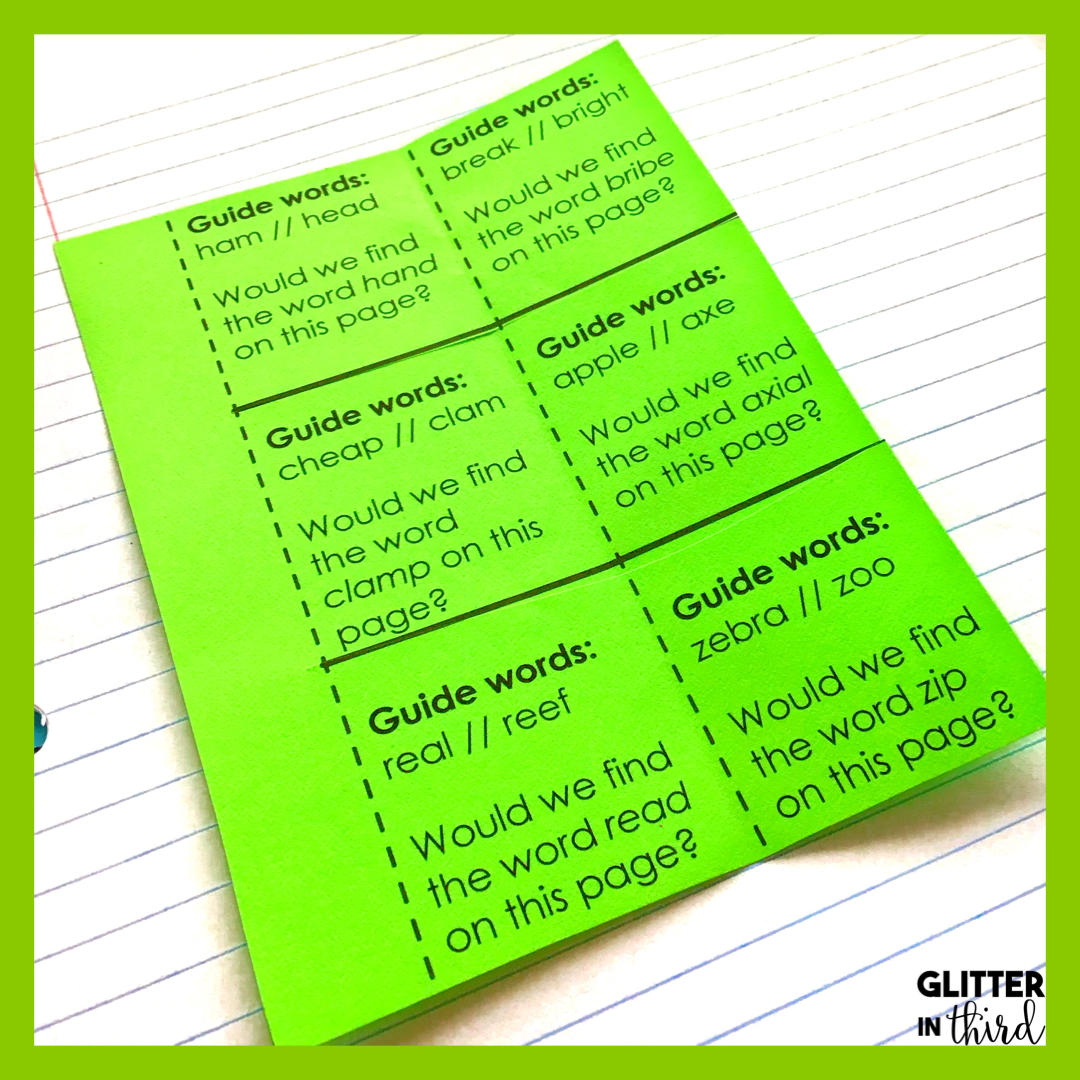 Guide words:
ham // head
Would we find
the word hand
on this page?
Guide words:
break // bright
Would we find
the word bribe
on this page?
Guide words:
cheap // clam
Would we find
the word
clamp on this
page?
Guide words:
apple // axe
Would we find
the word axial
on this page?
Guide words:
real // reef
Would we find
the word read
on this page?
Guide words:
zebra // zoo
Would we find
the word zip
on this page?
GLITTER
IN third